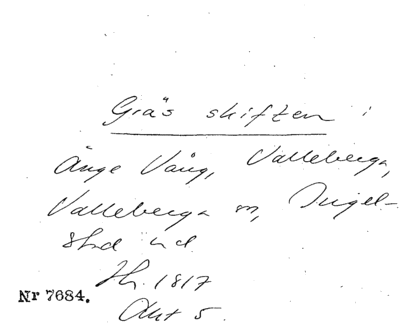 Gräs skiften i
Änge Vång, Valleberga,
Valleberga sn, Ingel-
stad hd
Sk. 1817
Akt 5
Nr 7684.